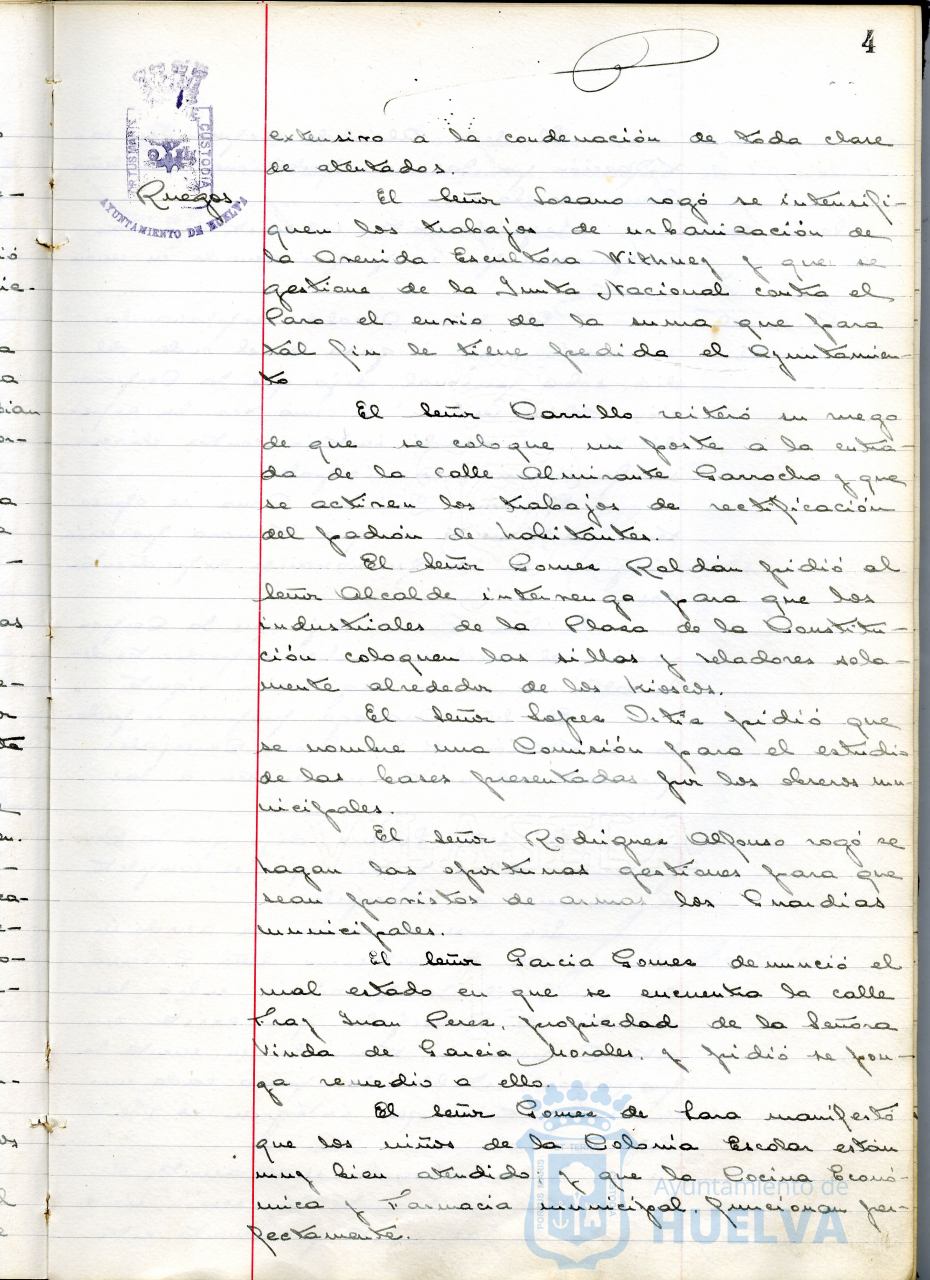 4
extensivo a la condenación de toda clase
de atentados.
PORTUS MARIS
CUSTODIA
AYUNTAMIENTO DE HUELVA
Ruegos
El Señor Lozano rogó se intensifi-
quen los trabajos de urbanización de
la Avenida Escultora Withney y que se
gestione de la Junta Nacional contra el
Paro el envio de la suma que para
tal fin le tiene pedida el Ayuntamien-
to
El Señor Carrillo reiteró su ruego
de que se coloque un poste a la entra-
da de la calle Almirante Garrocho y que
se activen los trabajos de rectificación
del padrón de habitantes.
El Señor Gomez Roldán pidió al
Señor Alcalde intervenga para que los
industriales de la Plaza de la Constitu-
ción coloquen las sillas y veladores sola-
mente alrededor de los Kioscos.
El Señor Lopez Ortia pidió que
se nombre una Comisión para el estudio
de las bases presentadas por los obreros mu-
nicipales.
El Señor Rodriguez Alfonso rogó se
hagan las oportunas gestiones para que
sean provistos de armas los Guardias
municipales.
El Señor Garcia Gomez denunció el
mal estado en que se encuentra la calle
Fray Juan Perez, propiedad de la Señora
Vinda de Garcia Morales, y pidió se pon-
ga remedio a ello.
El Señor Gomez de Lara manifestó
que los niños de la Colonia Escolar están
muy bien atendido y que la Cocina Econó-
mica y Farmacia municipal, funcionan per-
fectamente.
Ayuntamiento de
HUELVA